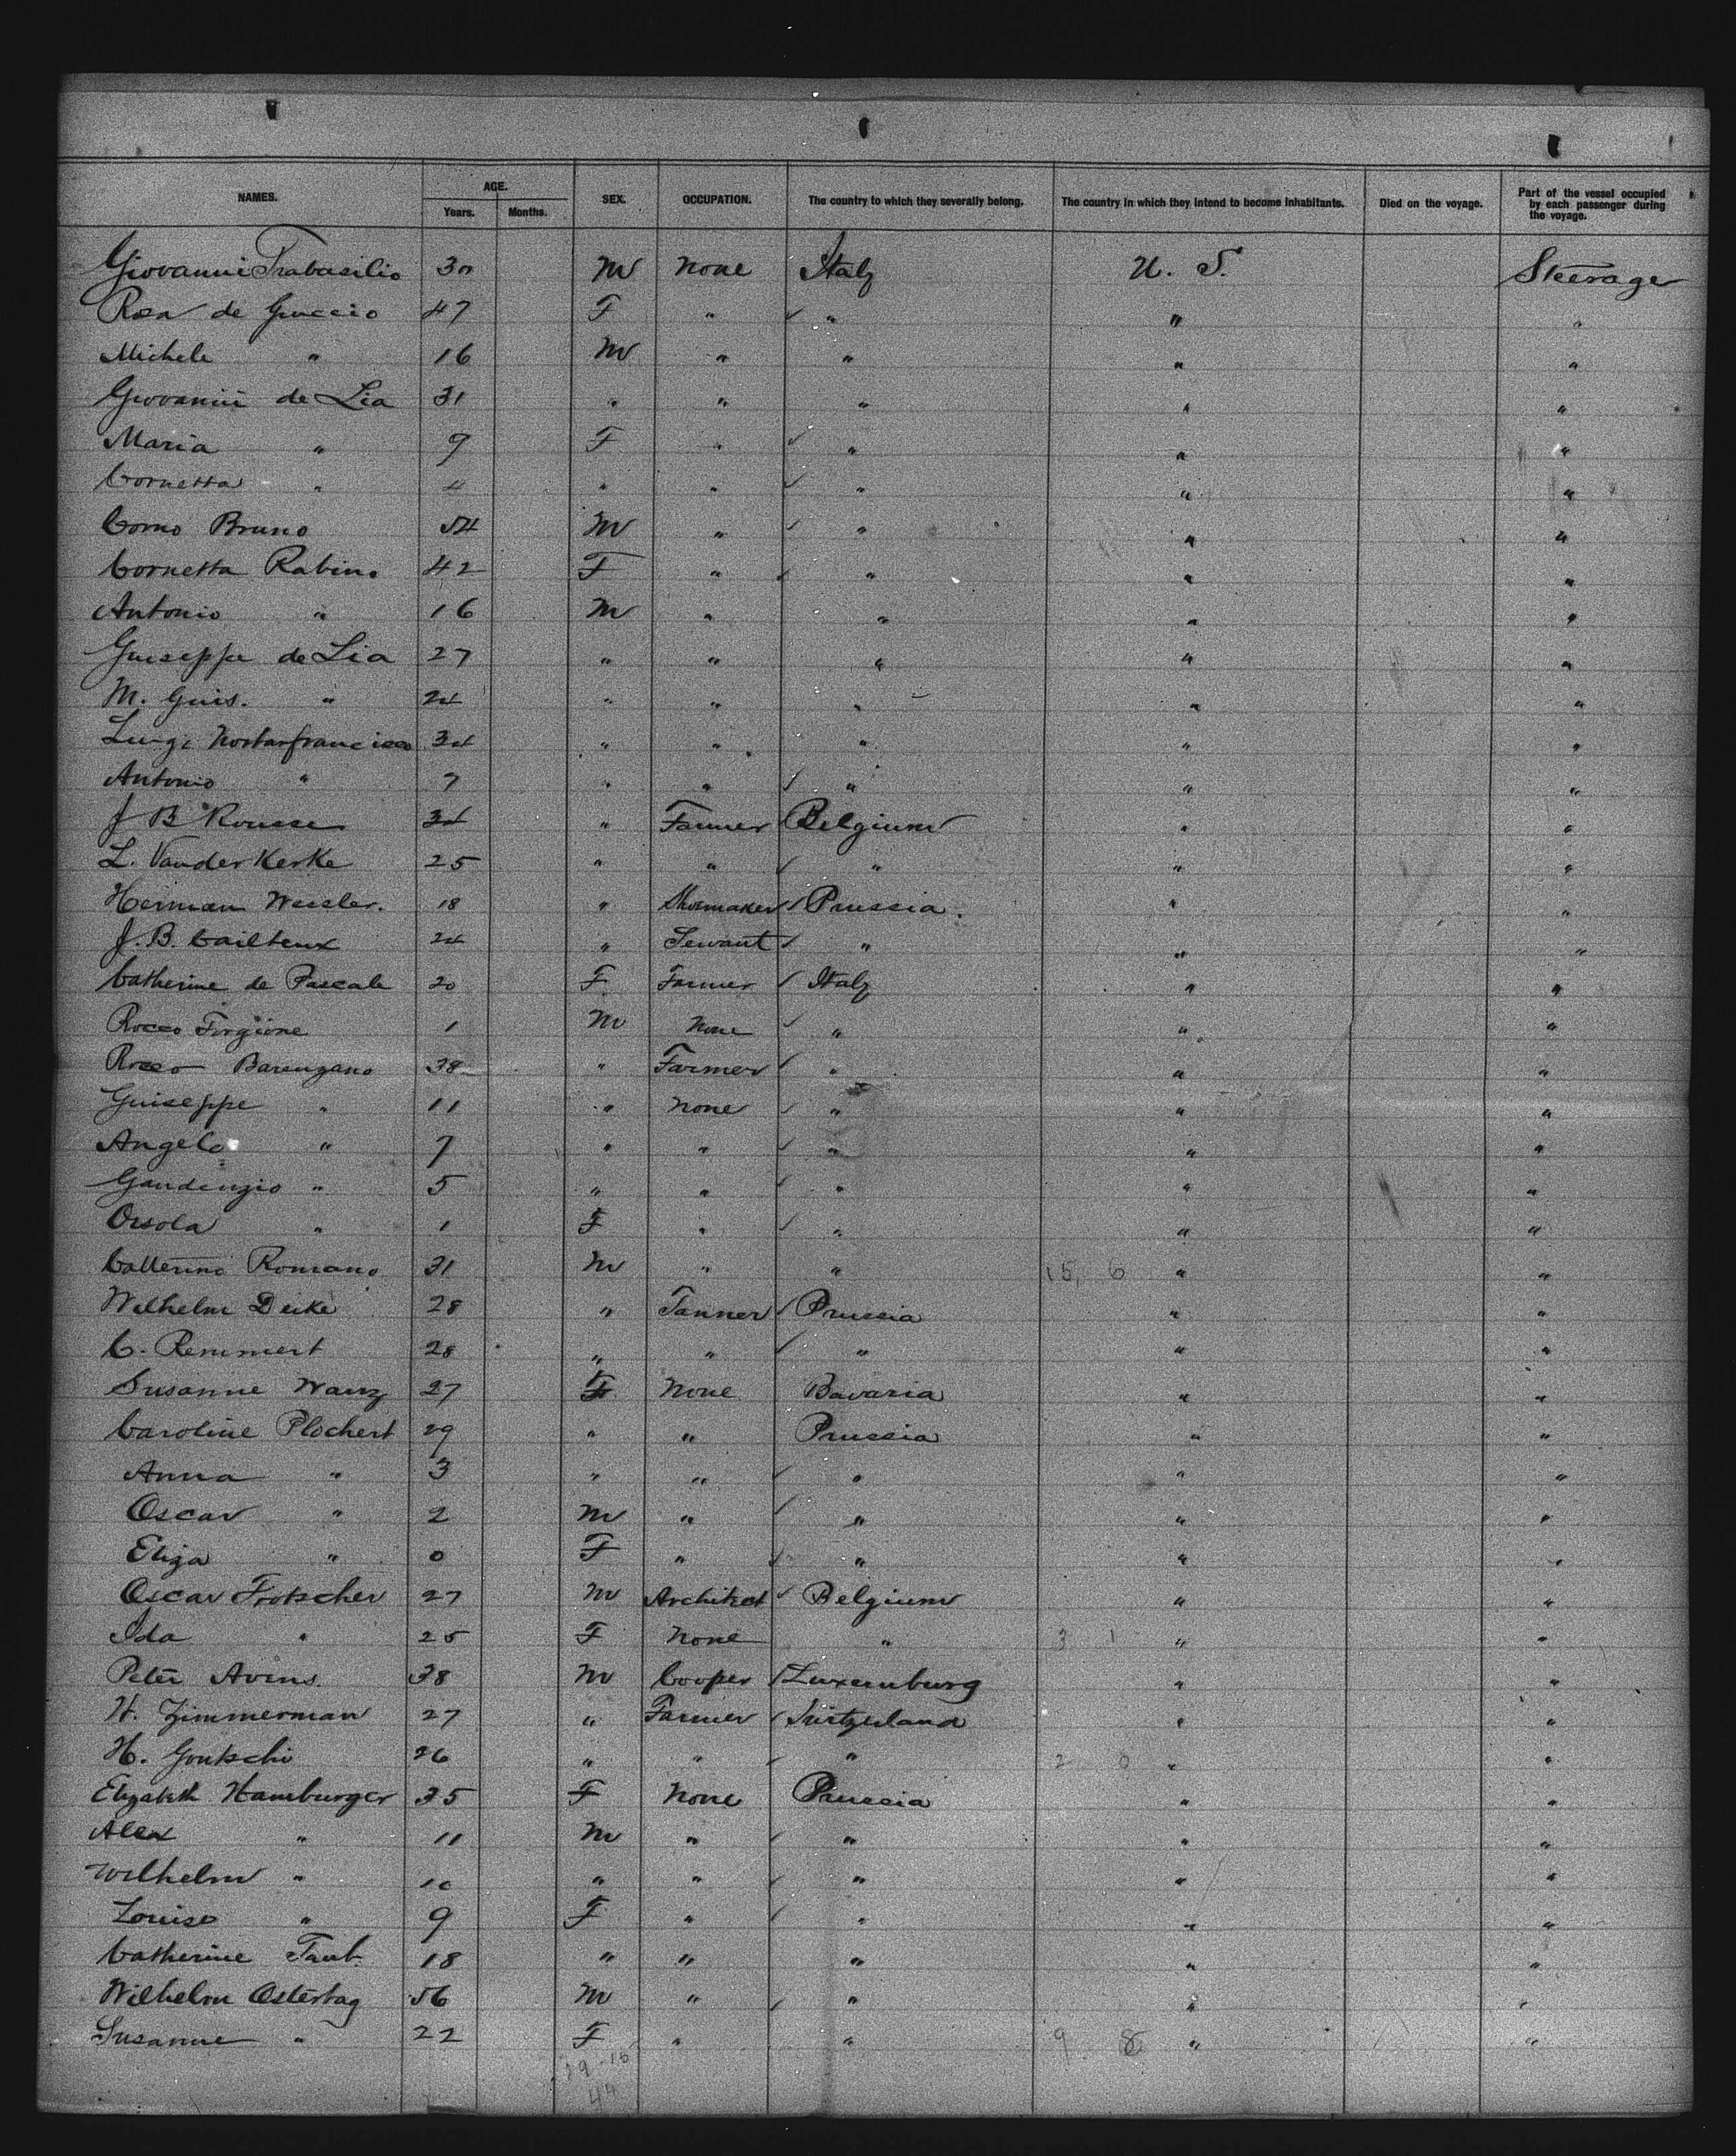 NAMES. AGE. SEX. OCCUPATION. The country to which they severally belong. The country in which they intend to become inhabitants. Died on the voyage. Part of the vessel occupied by each passenger during the voyage.
Years. Months.
Giovanni Trabasilio 30 M None Italy U. S. Steerage
Rosa de Guccio 47 F " " " "
Michele " 16 M " " " "
Giovanni de Lia 31 " " " " "
Maria " 9 F " " " "
Cornetta " 4 " " " " "
Como Bruno 54 M " " " "
Cornetta Rabino 42 F " " " "
Antonio " 16 M " " " "
Guiseppe de Lia 27 " " " " "
M. Guis. " 24 " " " " "
Luigi 34 " " " " "
Antonio " 7 " " " " "
J B Rousse 34 " Farmer Belgium " "
L. Vanderkerke 25 " " " " "
Herman Wessler. 18 " Shoemaker Prussia. " "
J. B. Cailteux 24 " Servant " " "
Catherine de Pascale 20 F Farmer Italy " "
Rocco Forgione 1 M None " " "
Rocco Barenzano 38 " Farmer " " "
Guiseppe " 11 " None " " "
Angelo " 7 " " " " "
Gaudenzio " 5 " " " " "
Orsola " 1 F " " " "
Catterino Romano 31 M " " 15, 6 " "
Wilhelm Deike 28 " Tanner Prussia " "
C. Remmert 28 " " " " "
Susanne Wanz 27 F None Bavaria " "
Caroline Plochert 29 " " Prussia " "
Anna " 3 " " " " "
Oscar " 2 M " " " "
Eliza " 0 F " " " "
Oscar Frotscher 27 M Architect Belgium " "
Ida " 25 F None " 3 1 " "
Peter Avens. 38 M Cooper Luxemburg " "
H. Zimmerman 27 " Farmer Switzerland " "
H. Gontschi 26 " " " 2 0 " "
Elizabeth Hamburger 35 F None Prussia " "
Alex " 11 M " " " "
Wilhelm " 10 " " " " "
Louise " 9 F " " " "
Catherine Taub. 18 " " " " "
Wilhelm Ostertag 56 M " " " "
Susanne " 22 F " " 9 8 " "
29-15
44